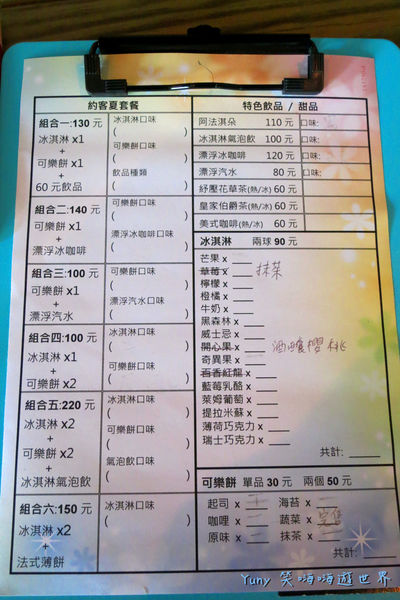 約客夏套餐
組合一:130 元
冰淇淋 x1
+
可樂餅 x1
+
60 元飲品
冰淇淋口味
( )
可樂餅口味
( )
飲品種類
( )
組合二:140 元
可樂餅 x1
+
漂浮冰咖啡
可樂餅口味
( )
漂浮冰咖啡口味
( )
組合三:100 元
可樂餅 x1
+
漂浮汽水
可樂餅口味
( )
漂浮汽水口味
( )
組合四:100 元
冰淇淋 x1
+
可樂餅 x2
冰淇淋口味
( )
可樂餅口味
( )
組合五:220 元
冰淇淋 x2
+
可樂餅 x2
+
冰淇淋氣泡飲
冰淇淋口味
( )
可樂餅口味
( )
氣泡飲口味
( )
組合六:150 元
冰淇淋 x2
+
法式薄餅
冰淇淋口味
( )
特色飲品 / 甜品
阿法淇朵 110 元 口味:
冰淇淋氣泡飲 100 元 口味:
漂浮冰咖啡 120 元 口味:
漂浮汽水 80 元 口味:
紓壓花草茶(熱/冰) 60 元
皇家伯爵茶(熱/冰) 60 元
美式咖啡(熱/冰) 60 元
冰淇淋 兩球 90 元
芒果 x
華莓 x 抹茶
檸檬 x
橙橘 x
牛奶 x
黑森林 x
威士忌 x
開心果 x 酒釀櫻桃
奇異果 x
百香紅龍 x
藍莓乳酪 x
萊姆葡萄 x
提拉米蘇 x
薄荷巧克力 x
瑞士巧克力 x
共計:
可樂餅 單品 30 元 兩個 50 元
起司 x 海苔 x
咖哩 x 蔬菜 x 完售
原味 x 抹茶 x
共計:
Yuny 笑嗨嗨遊世界